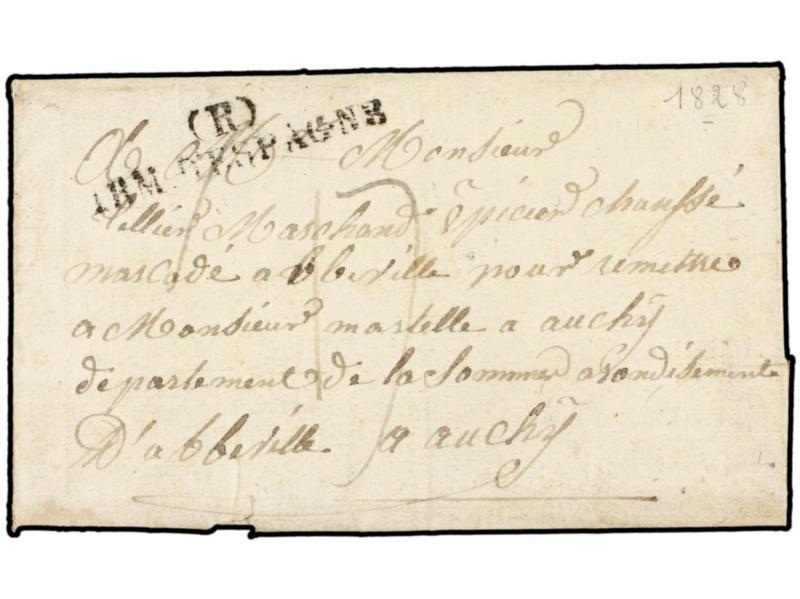 1828
(R)
ARM. D'ESPAGNE
A Monsieur
tellier Marchand épicier chaussé
marcadé abbeville pour remettre
a Monsieur martelle a auchÿ
département de la Somme arondisement
D'abbeville a auchÿ